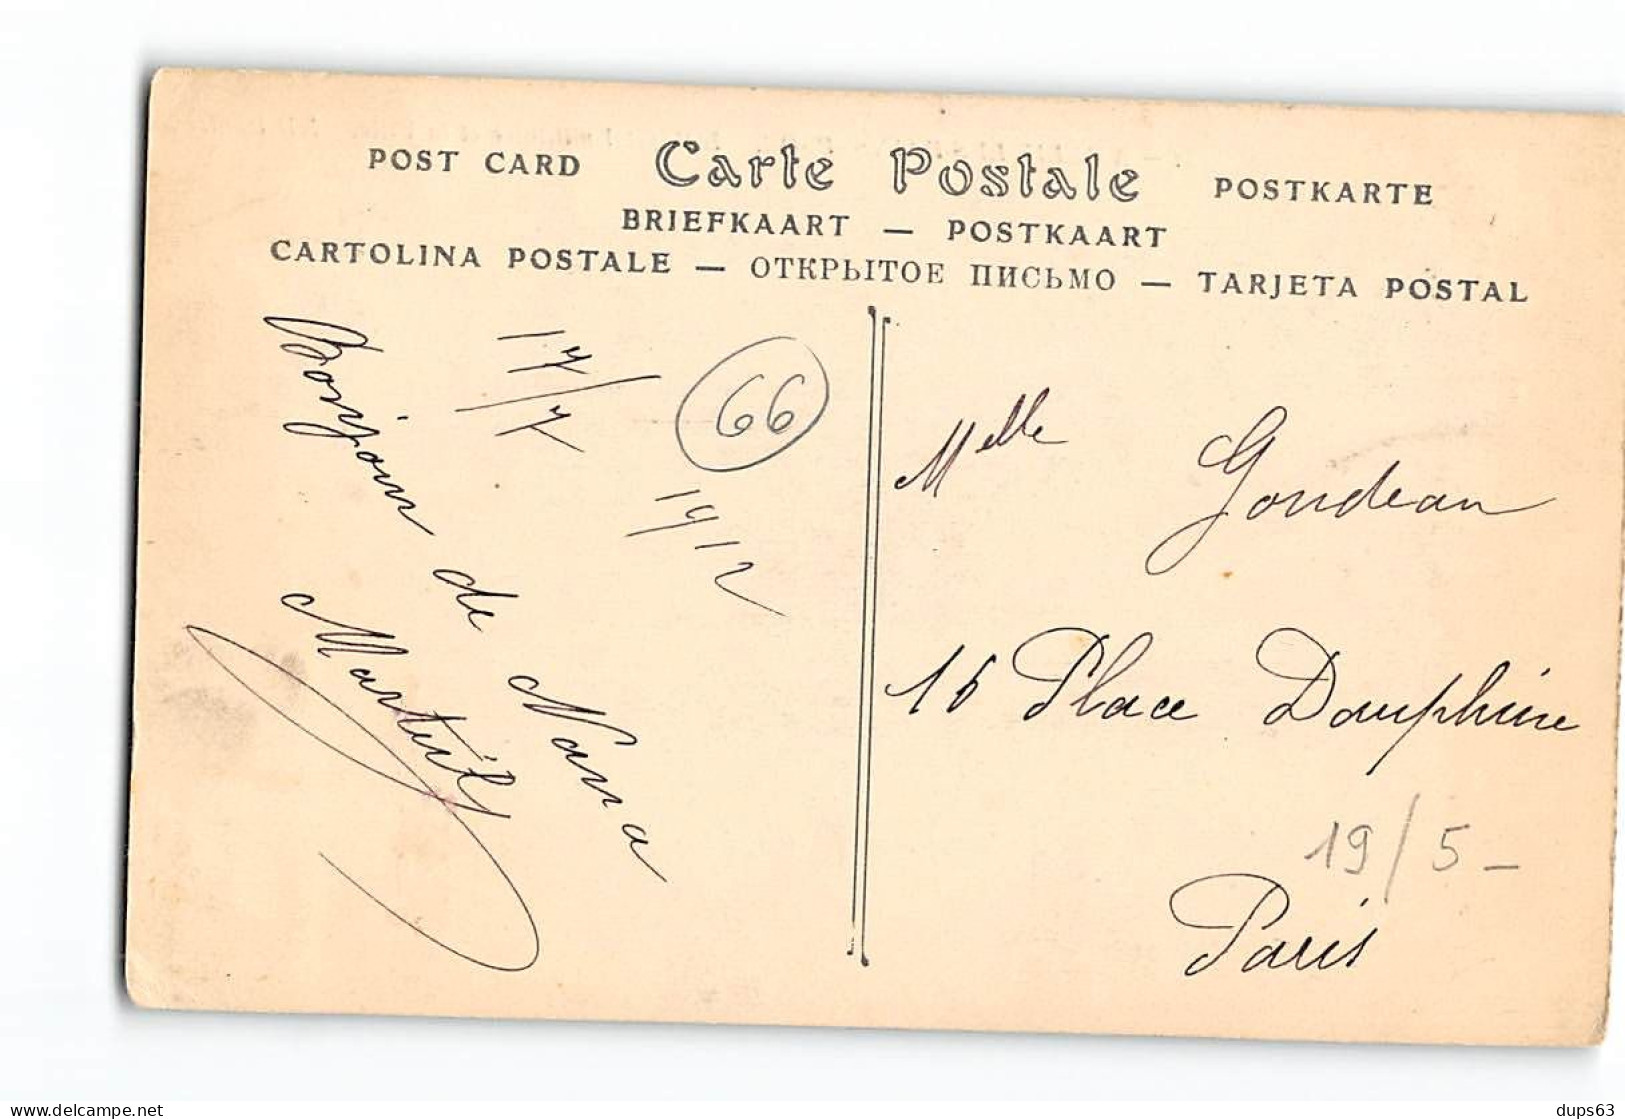 POST CARD Carte Postale POSTKARTE
BRIEFKAART — POSTKAART
CARTOLINA POSTALE — ОТКРЫТОЕ ПИСЬМО — TARJETA POSTAL
17/7
1912
66
Bonjour de Nana
Melle Goudeau
16 Place Dauphine
19/5-
Paris
www.delcampe.net
dups63